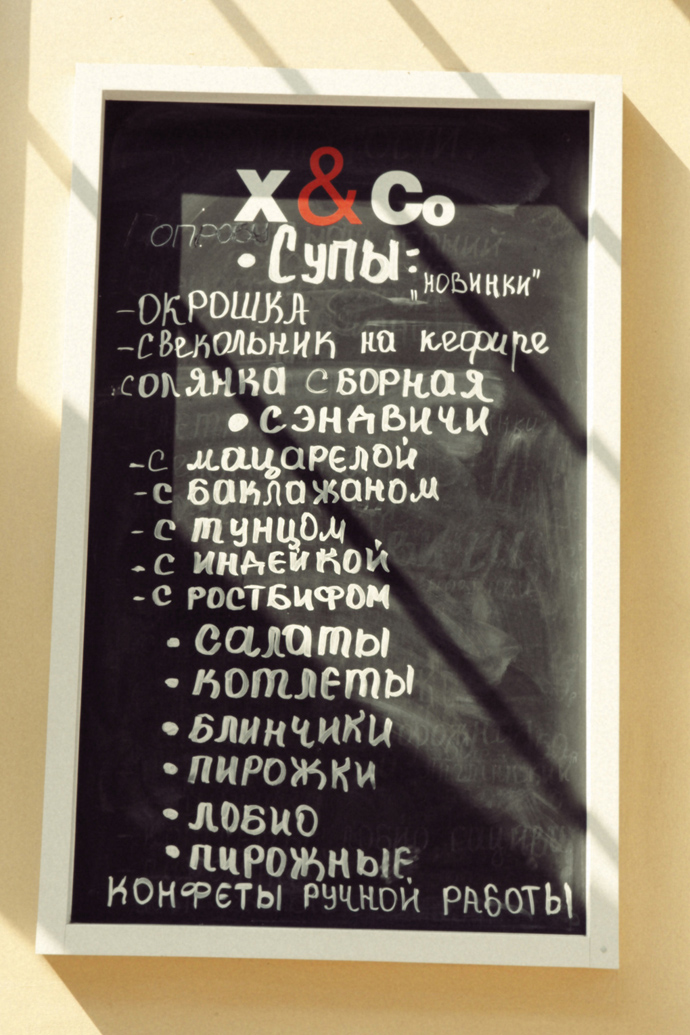 X & Co
• Супы:
"новинки"
-ОКРОШКА
-СВЕКОЛЬНИК на кефире
-СОЛЯНКА СБОРНАЯ
• СЭНДВИЧИ
-С МАЦАРЕЛОЙ
-С БАКЛАЖАНОМ
-С ТУНЦОМ
-С ИНДЕЙКОЙ
-С РОСТБИФОМ
• САЛАТЫ
• КОТЛЕТЫ
• БЛИНЧИКИ
• ПИРОЖКИ
• ЛОБИО
• ПИРОЖНЫЕ
КОНФЕТЫ РУЧНОЙ РАБОТЫ